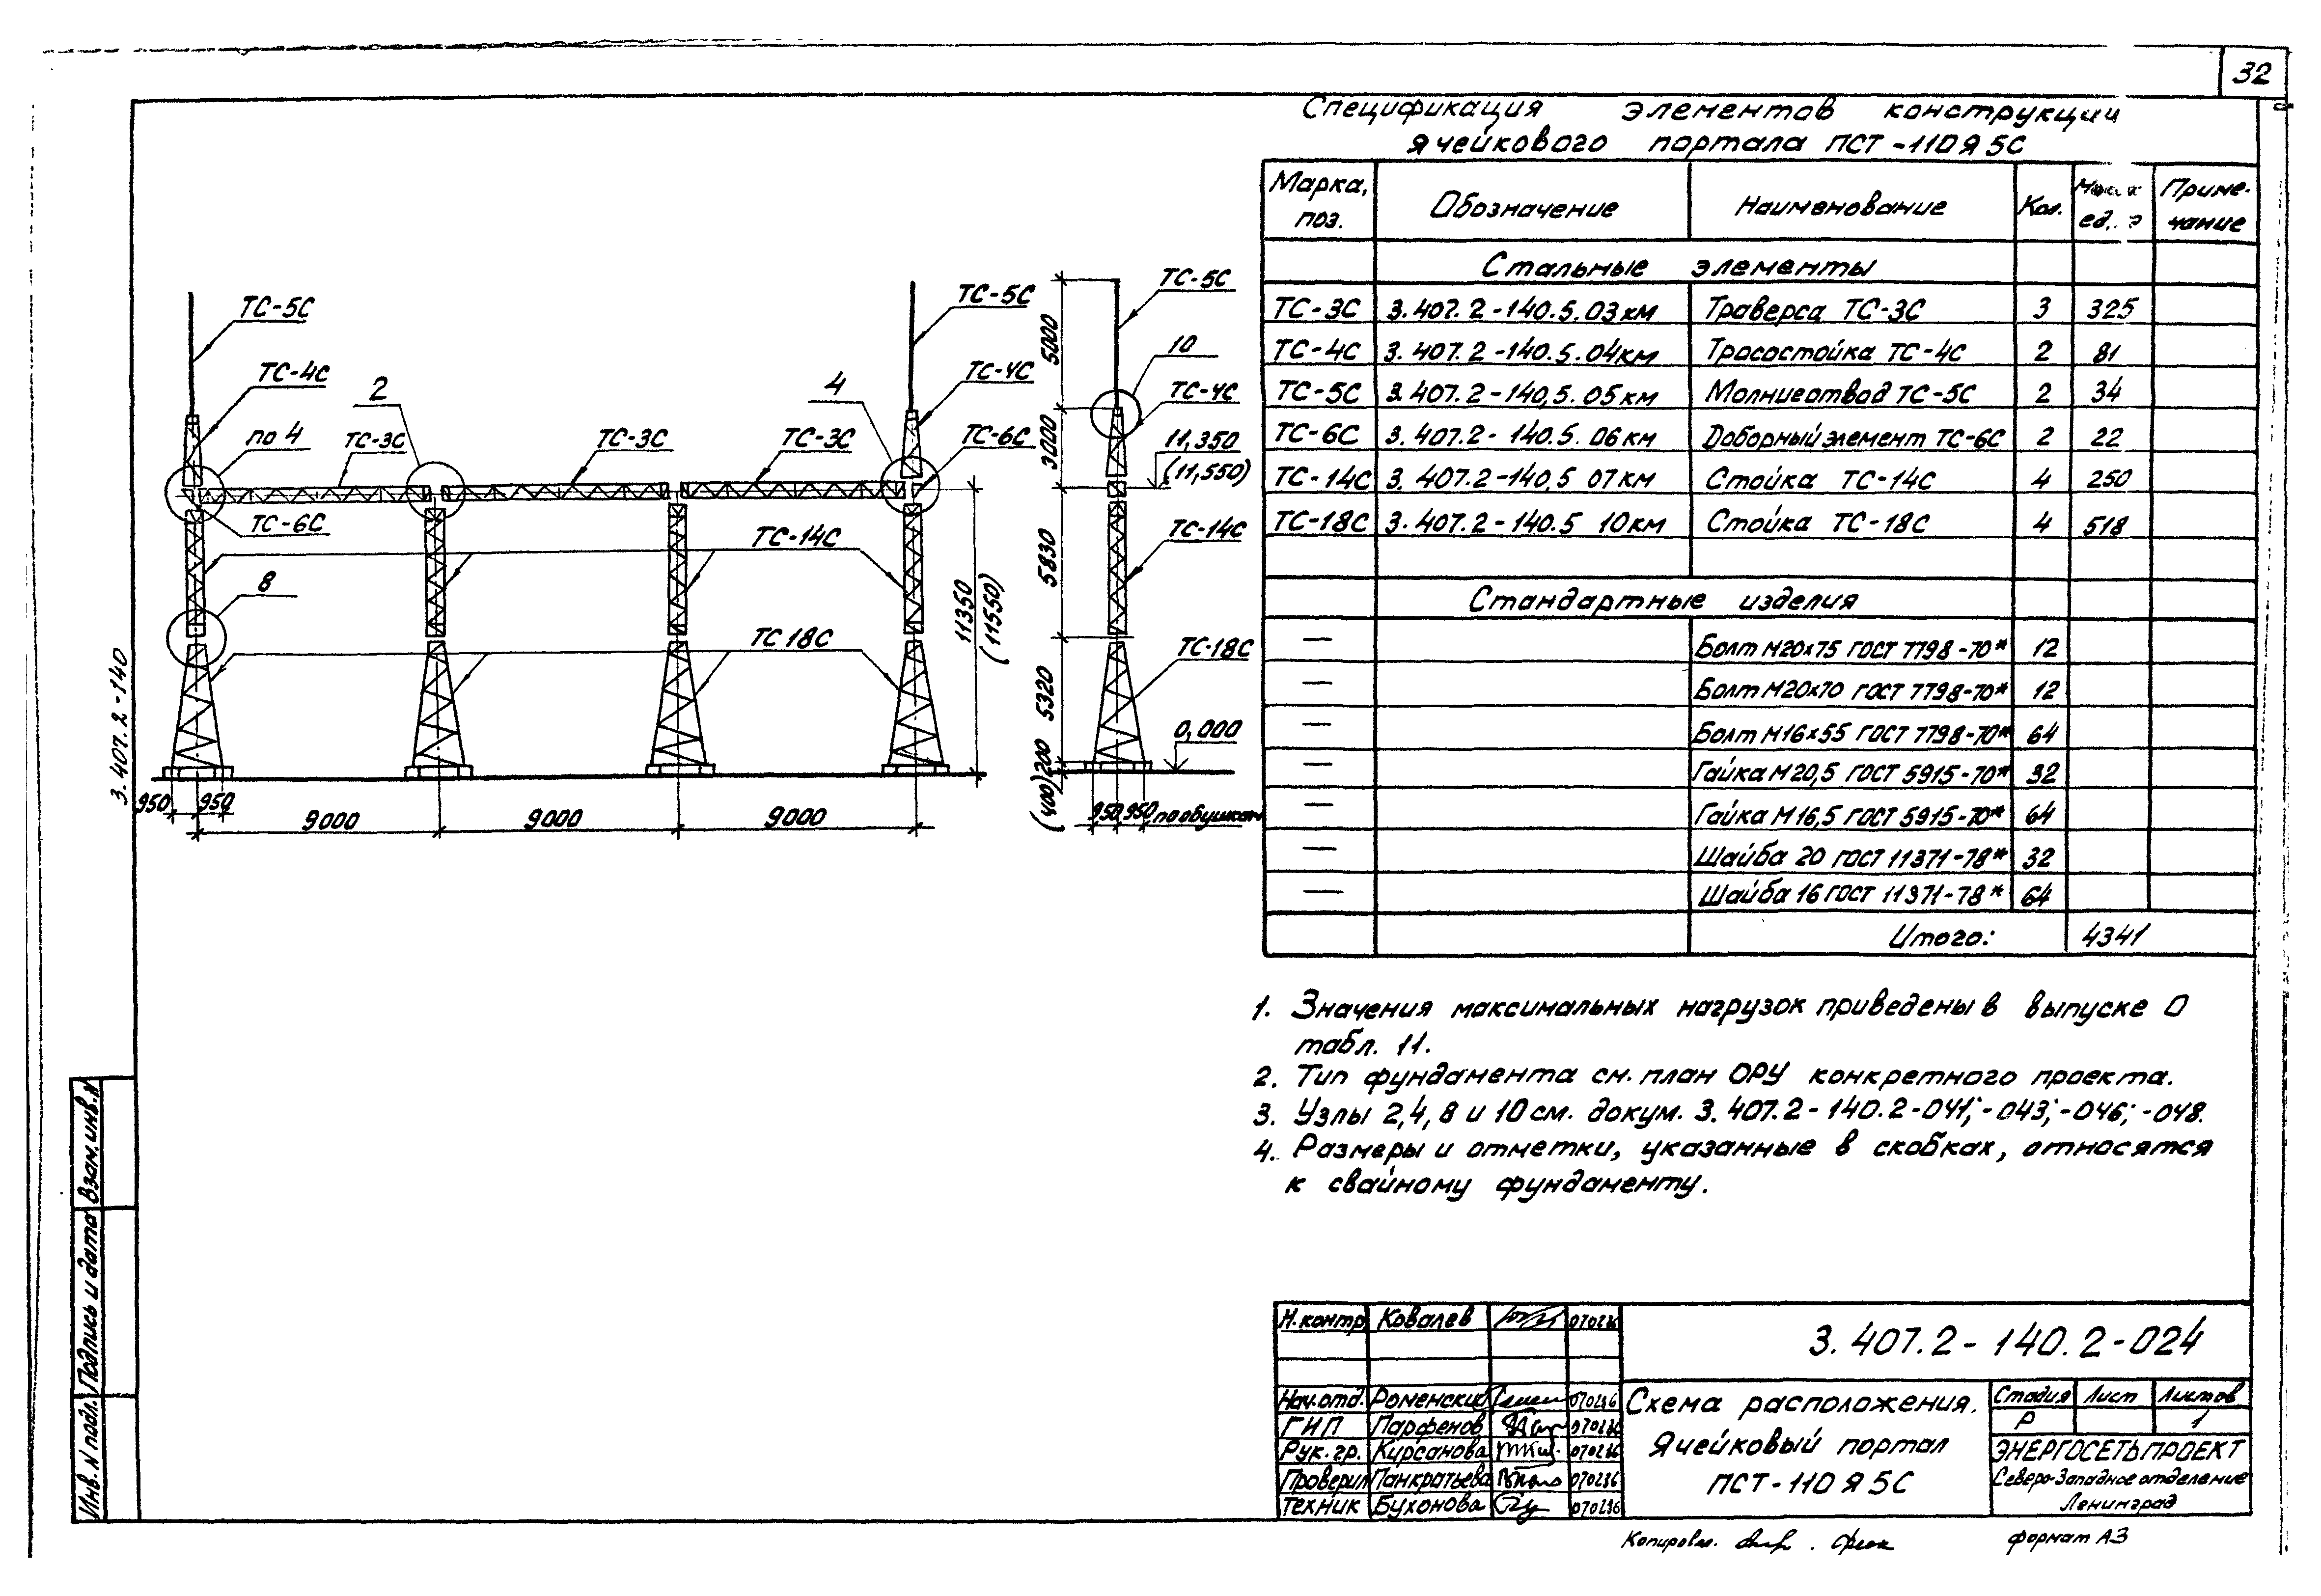 32
Спецификация элементов конструкции
ячейкового портала ПСТ-110Я5С
Марка, поз. Обозначение Наименование Кол. ед. Приме-чание
Стальные элементы
ТС-3С 3.407.2-140.5.03км Траверса ТС-3С 3 325
ТС-4С 3.407.2-140.5.04км Тросостойка ТС-4С 2 81
ТС-5С 3.407.2-140.5.05км Молниеотвод ТС-5С 2 34
ТС-6С 3.407.2-140.5.06км Доборный элемент ТС-6С 2 22
ТС-14С 3.407.2-140.5 07км Стойка ТС-14С 4 250
ТС-18С 3.407.2-140.5 10км Стойка ТС-18С 4 518
Стандартные изделия
— Болт М20х75 ГОСТ 7798-70* 12
— Болт М20х70 ГОСТ 7798-70* 12
— Болт М16х55 ГОСТ 7798-70* 64
— Гайка М20,5 ГОСТ 5915-70* 32
— Гайка М16,5 ГОСТ 5915-70* 64
— Шайба 20 ГОСТ 11371-78* 32
— Шайба 16 ГОСТ 11371-78* 64
Итого: 4341
ТС-5С
ТС-4С
по 4
ТС-3С
2
ТС-6С
8
ТС-3С
ТС-3С
4
ТС-5С
ТС-4С
ТС-6С
ТС-14С
ТС 18С
11350
(11550)
950 950
9000 9000 9000
ТС-5С
10
ТС-4С
11,350
(11,550)
ТС-14С
ТС-18С
0,000
5000
3000
5830
5320
(400)200
950 950 по обушкам
3.407.2-140
1. Значения максимальных нагрузок приведены в выпуске 0
табл. 11.
2. Тип фундамента см. план ОРУ конкретного проекта.
3. Узлы 2,4,8 и 10 см. докум. 3.407.2-140.2-041;-043;-046;-048.
4. Размеры и отметки, указанные в скобках, относятся
к свайному фундаменту.
Инв. N подл. Подпись и дата Взам.инв.N
Н.контр Ковалев 070286
Нач.отд. Роменский 070286
ГИП Парфенов 070286
Рук.гр. Кирсанова 070286
Проверил Панкратьева 070286
Техник Бухонова 070286
3.407.2-140.2-024
Схема расположения.
Ячейковый портал
ПСТ-110Я5С
Стадия Лист Листов
Р 1
ЭНЕРГОСЕТЬПРОЕКТ
Северо-Западное отделение
Ленинград
Копировал.
формат А3